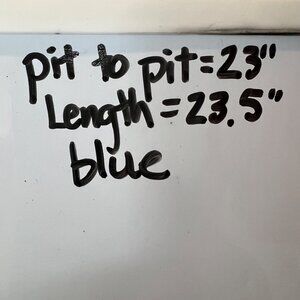 pit to pit=23"
Length=23.5"
blue